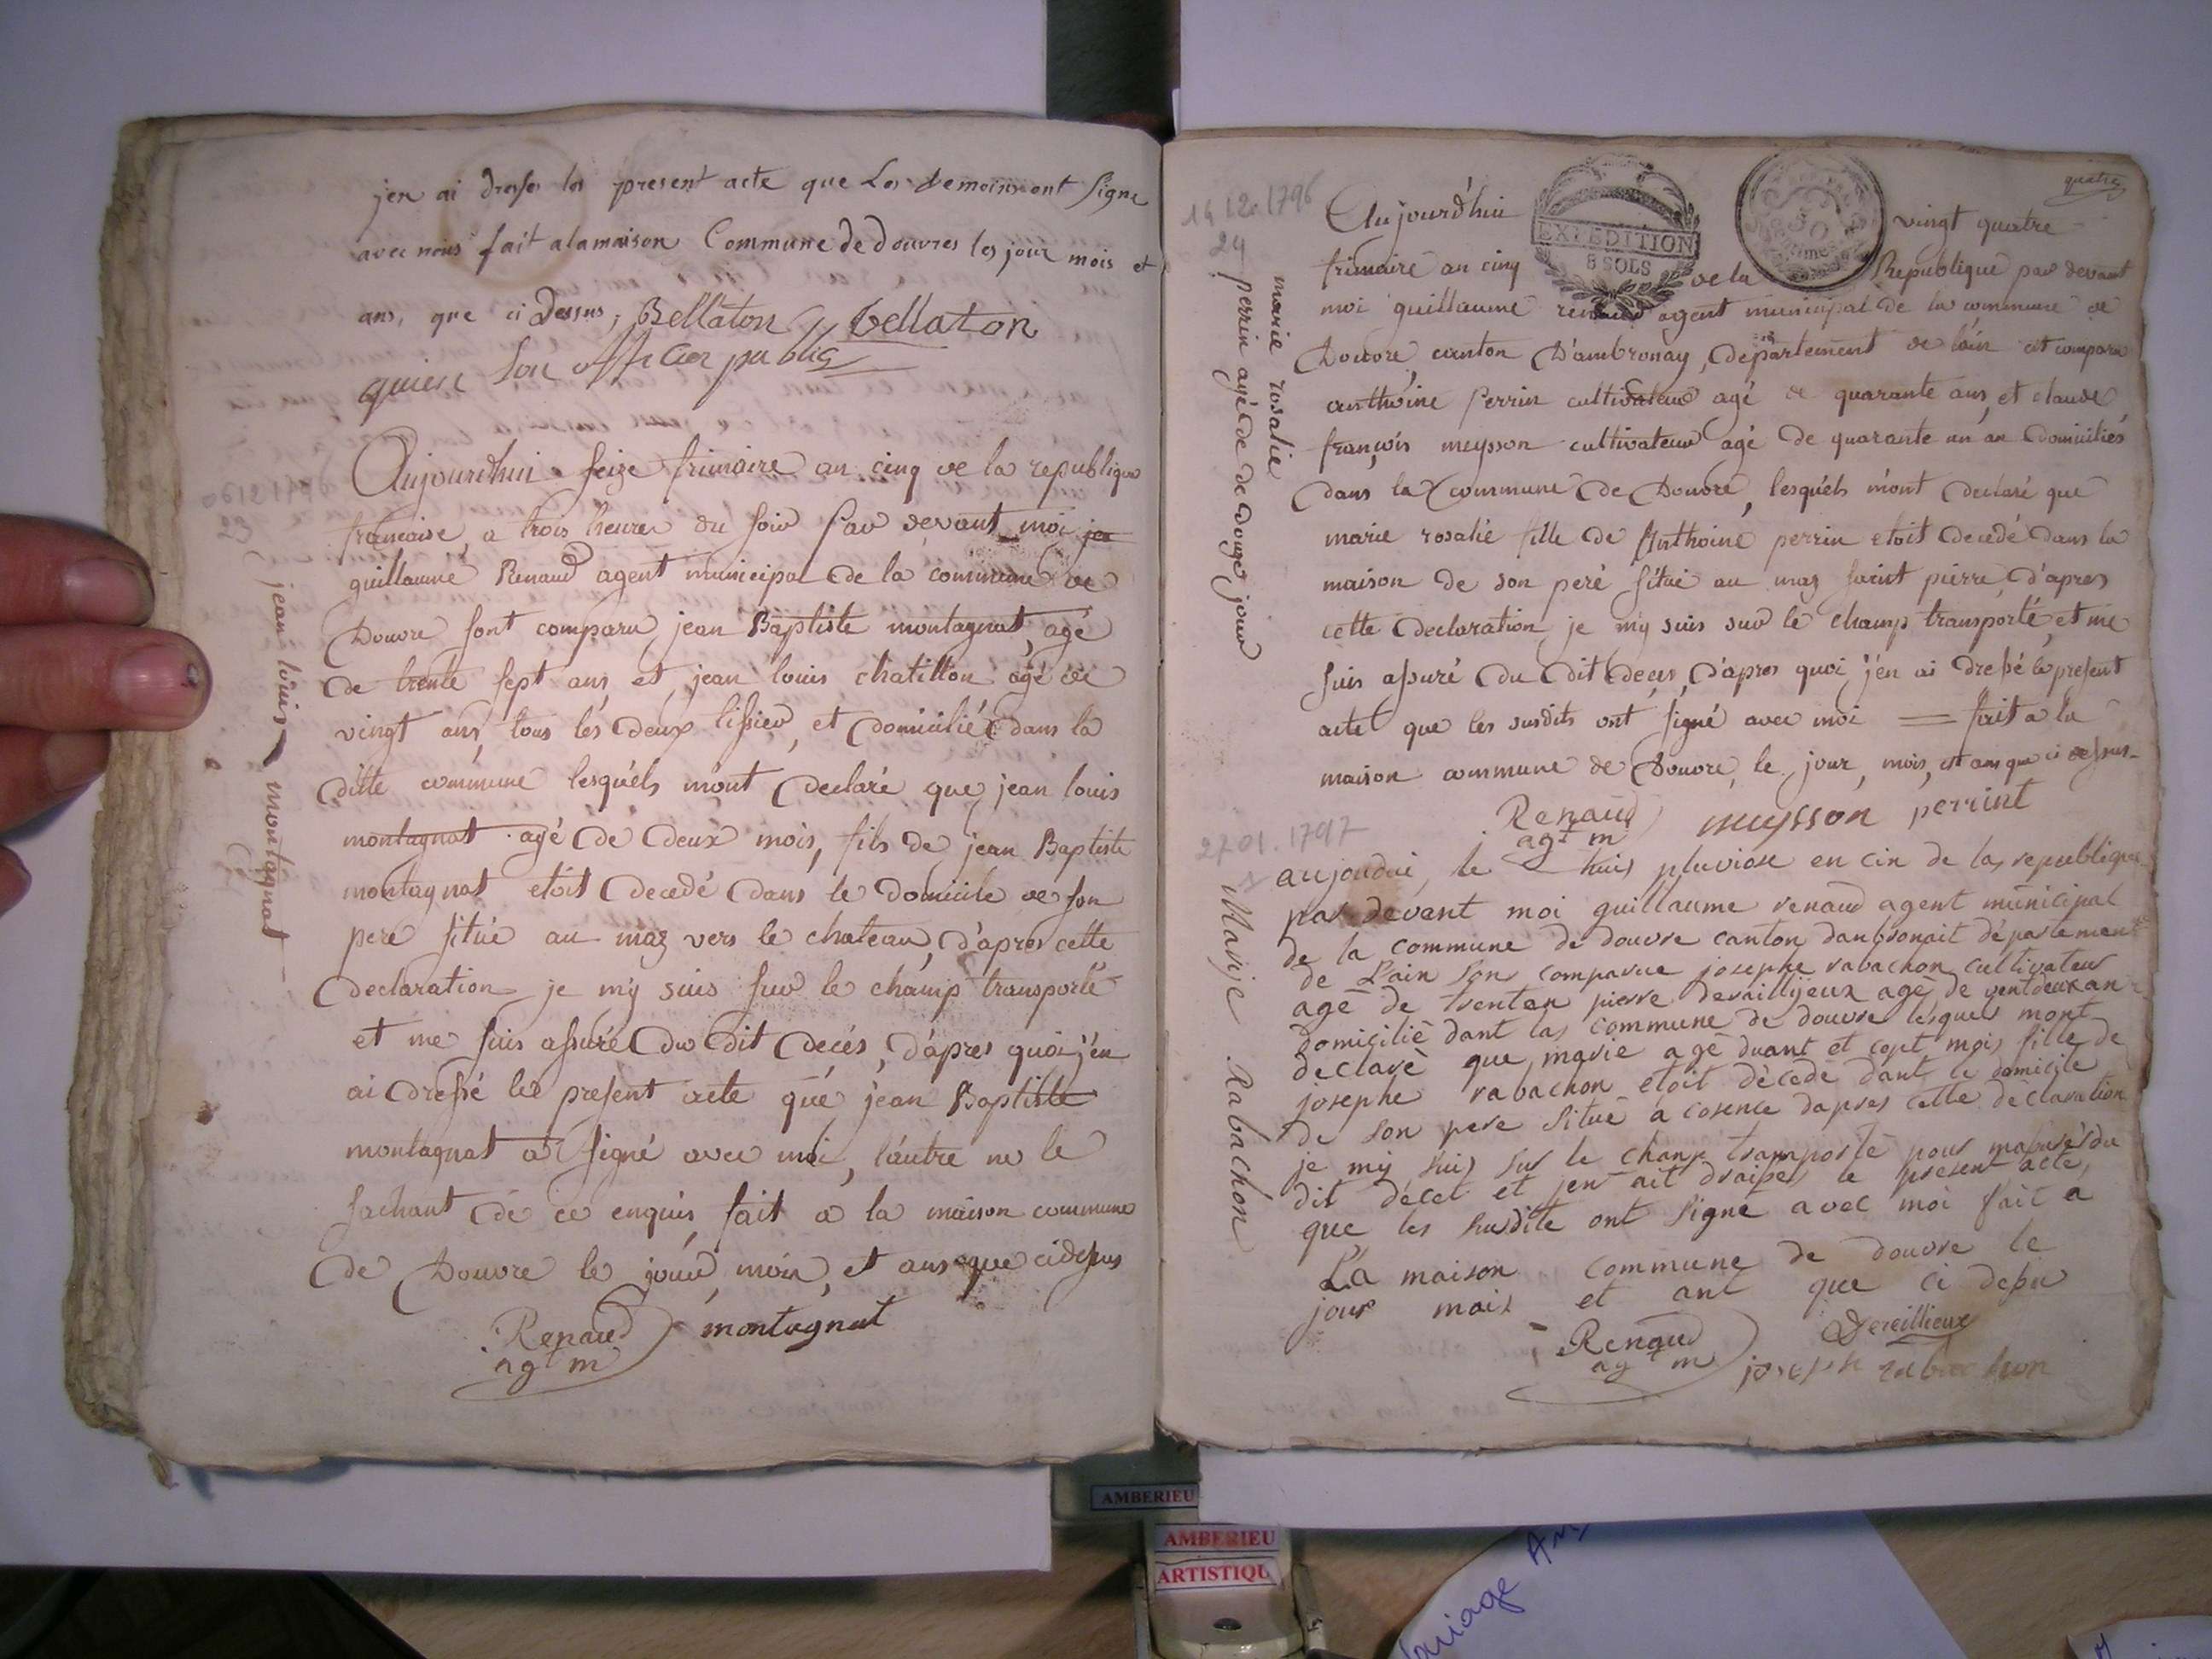 jen ai dresse les present acte que Les temoins ont signe
avec nous fait a la maison Commune de douvres les jour mois et
ans, que ci dessus, Bellaton bellaton
officier public
Aujourdhui seize frimaire an cinq de la republique
francaise, a trois heures du soir par devant moi
guillaume Renaud agent municipal de la commune de
Douvre sont comparu jean Baptiste montagnat, agé
de trente sept ans, et jean louis chatillon agé de
vingt ans, tous les deux tissier, et domicilié dans la
ditte commune lesquels m'ont declaré que jean louis
montagnat agé de deux mois, fils de jean Baptiste
montagnat etoit decedé dans le domicile de son
pere situé au maz vers le chateau, d'apres cette
declaration je m'y suis sur le champ transporté
et me suis assuré du dit decés, d'apres quoi j'en
ai dressé le present acte que jean Baptiste
montagnat a signé avec moi, l'autre ne le
sachant de ce enquis, fait a la maison commune
de Douvre le jour, mois, et ans que cidessus
Renaud montagnat
agt m
23
jean louis montagnat
quatre
14.12.1796
24
marie rosalie
perrin agé de de douze jour
Aujourd'hui vingt quatre
EXPEDITION
8 SOLS
50
frimaire an cinq de la Republique par devant
moi guillaume renaud agent municipal de la commune de
Douvre, canton D'ambronay, departement de l'ain ont comparu
anthoine perrin cultivateur agé de quarante ans, et claude
françois meysson cultivateur agé de quarante un an domiciliés
dans la commune de Douvre, lesquels m'ont declaré que
marie rosalie fille de Anthoine perrin etoit decedé dans la
maison de son peré situé au maz saint pierre, d'apres
cette declaration je m'y suis sur le champ transporté, et me
suis assuré du dit deces, d'apres quoi j'en ai dressé le present
acte que les susdits ont signé avec moi = fait a la
maison commune de Douvre, le jour, mois, et ans que ci dessus
Renaud meysson perrint
agt m
27.01.1797
Marie Rabachon
aujoudui le huis pluviose en cin de las republique
par devant moi guillaume renaud agent municipal
de la commune de douvre canton danbronait département
de Lain sont comparue josephe rabachon cultivateur
agé de trentan pierre deraillyeux agé de ventdeuxan
domicilié dant las commune de douvre lesquel mont
declaré que marie agé duant et cept mois fille de
josephe rabachon étoit décedé dant le domicile
de son pere situé a cosence dapres cette déclaration
je mis suis sur le champ transporté pour masurér du
dit décet et jen ait draisés le present acte,
que les susdite ont signé avec moi fait a
La maison commune de douvre le
jour mois et ant que ci desu
Renaud Dereillieux
agt m joseph rabachon
AMBERIEU
AMBERIEU
ARTISTIQU